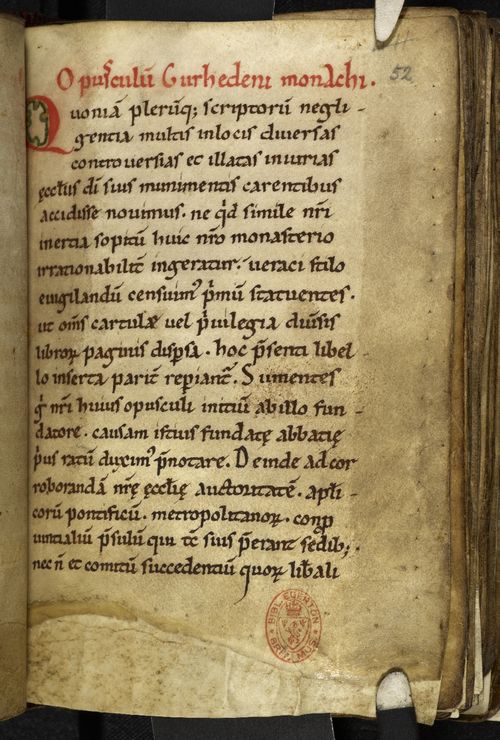 Opusculū Gurhedeni monachi.
52
Quoniā plerūq; scriptorū negli-
gentia multis inlocis diversas
controversias et illatas iniurias
ęcclїis dī suis munimentis carentibus
accidisse novimus. ne qͥd simile nr̄i
inertia sopitū huic nr̄o monasterio
irrationabilit̄ ingeratur. veraci stilo
evigilandū censuimꝰ p̄mū statuentes.
ut om̄s cartulæ vel pͥvilegia div̄sis
libroꝝ paginis disp̄sa. hoc p̄senti libel
lo inserta parit̄ rep̄iant̄. Sumentes
gͥ nr̄i huius opusculi initiū ab illo fun-
datore. causam istius fundatę abbatię
pͥus ratū duximꝰ p̄notare. Deinde ad cor
roborandā nr̄ę ęcclīę auctoritatē. apl̄i-
corū pontificū. metropolitanoꝝ. conp
vintialiū p̄sulū qui tc̄ suis p̄erant sedib;.
nec n̄ et comitū succedentiū quoꝝ lib̄ali
BIBL EGERTON
BRIT MUS